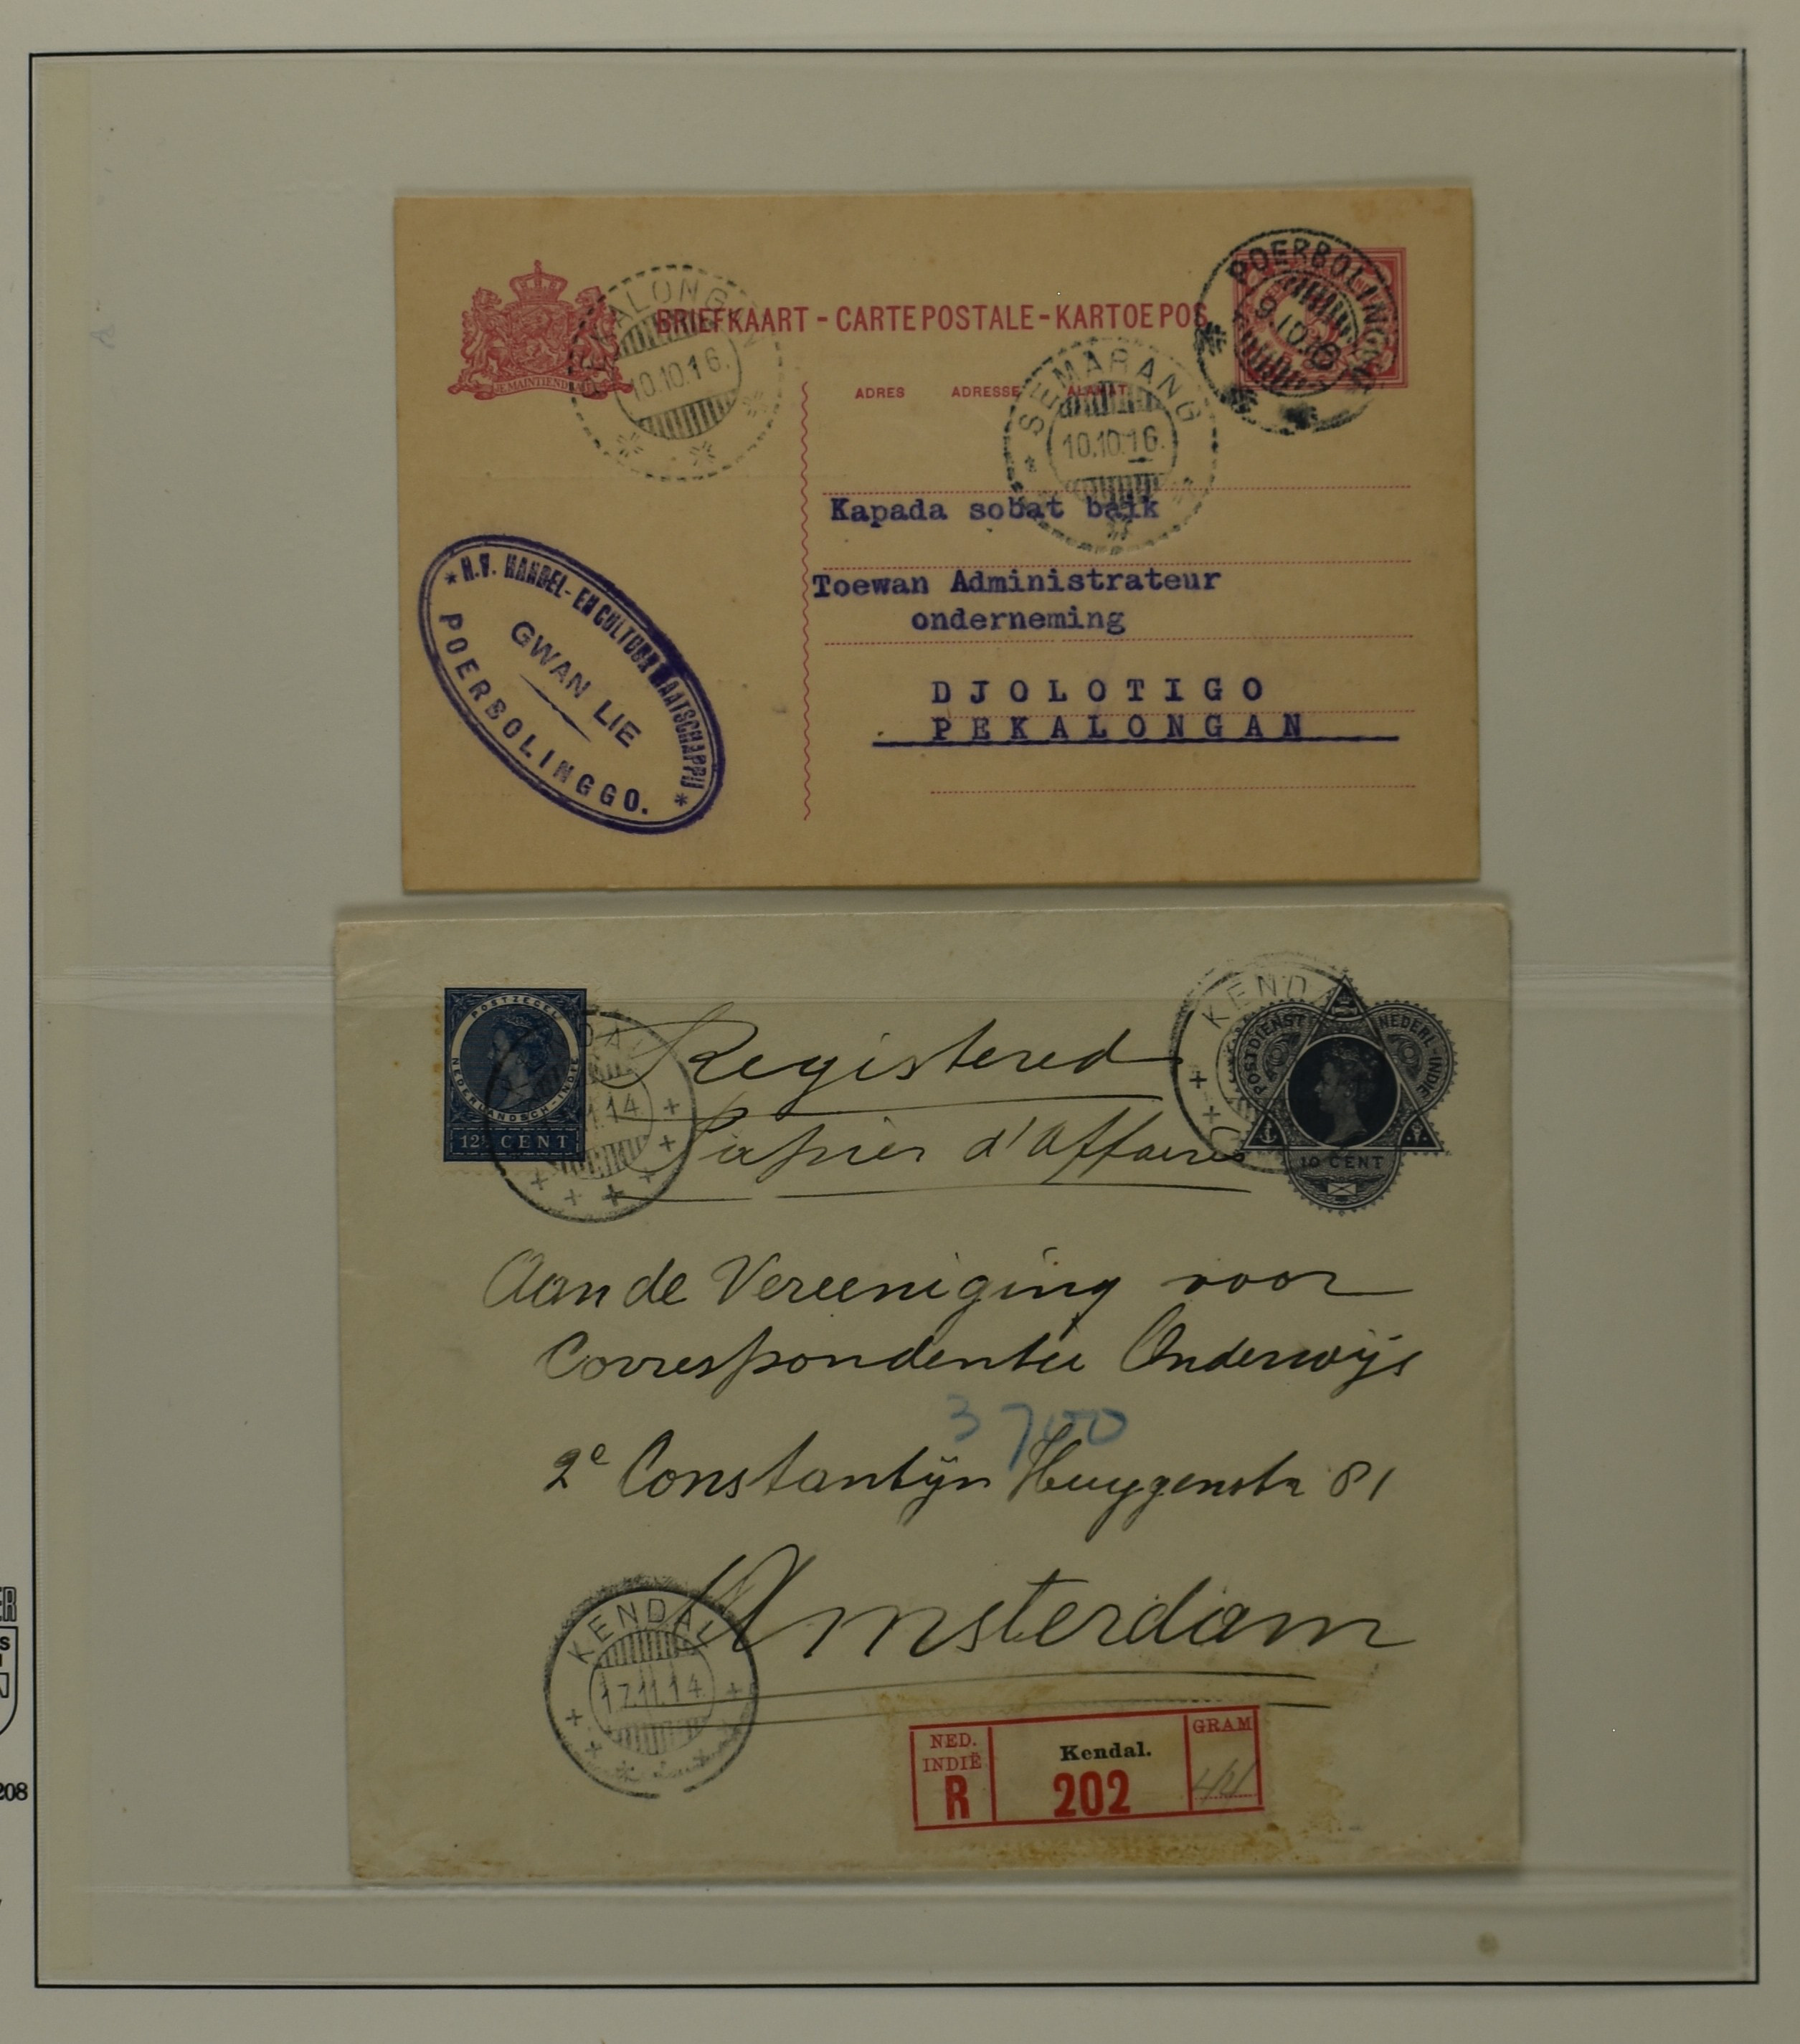 BRIEFKAART - CARTE POSTALE - KARTOE POS
JE MAINTIENDRAI
ADRES ADRESSE ALAMAT
PEKALONGAN
10.10.16.
SEMARANG
10.10.16.
POERBOLINGGO
9.10.
Kapada sobat baik
Toewan Administrateur
onderneming
DJOLOTIGO
PEKALONGAN
* N.V. HANDEL- EN CULTUUR MAATSCHAPPIJ *
GWAN LIE
POERBOLINGGO.
POSTZEGEL
NEDERLANDSCH-INDIE
12½ CENT
KENDAL
11.14
Registered
Papier d'affaires
KENDAL
POSTDIENST NEDERL-INDIE
10 CENT
Aan de Vereeniging voor
Correspondentie Onderwijs
3700
2e Constantijn Huygenstr 81
Amsterdam
KENDAL
17.11.14.
NED.
INDIË
R
Kendal.
202
GRAM
ER
S
N
208